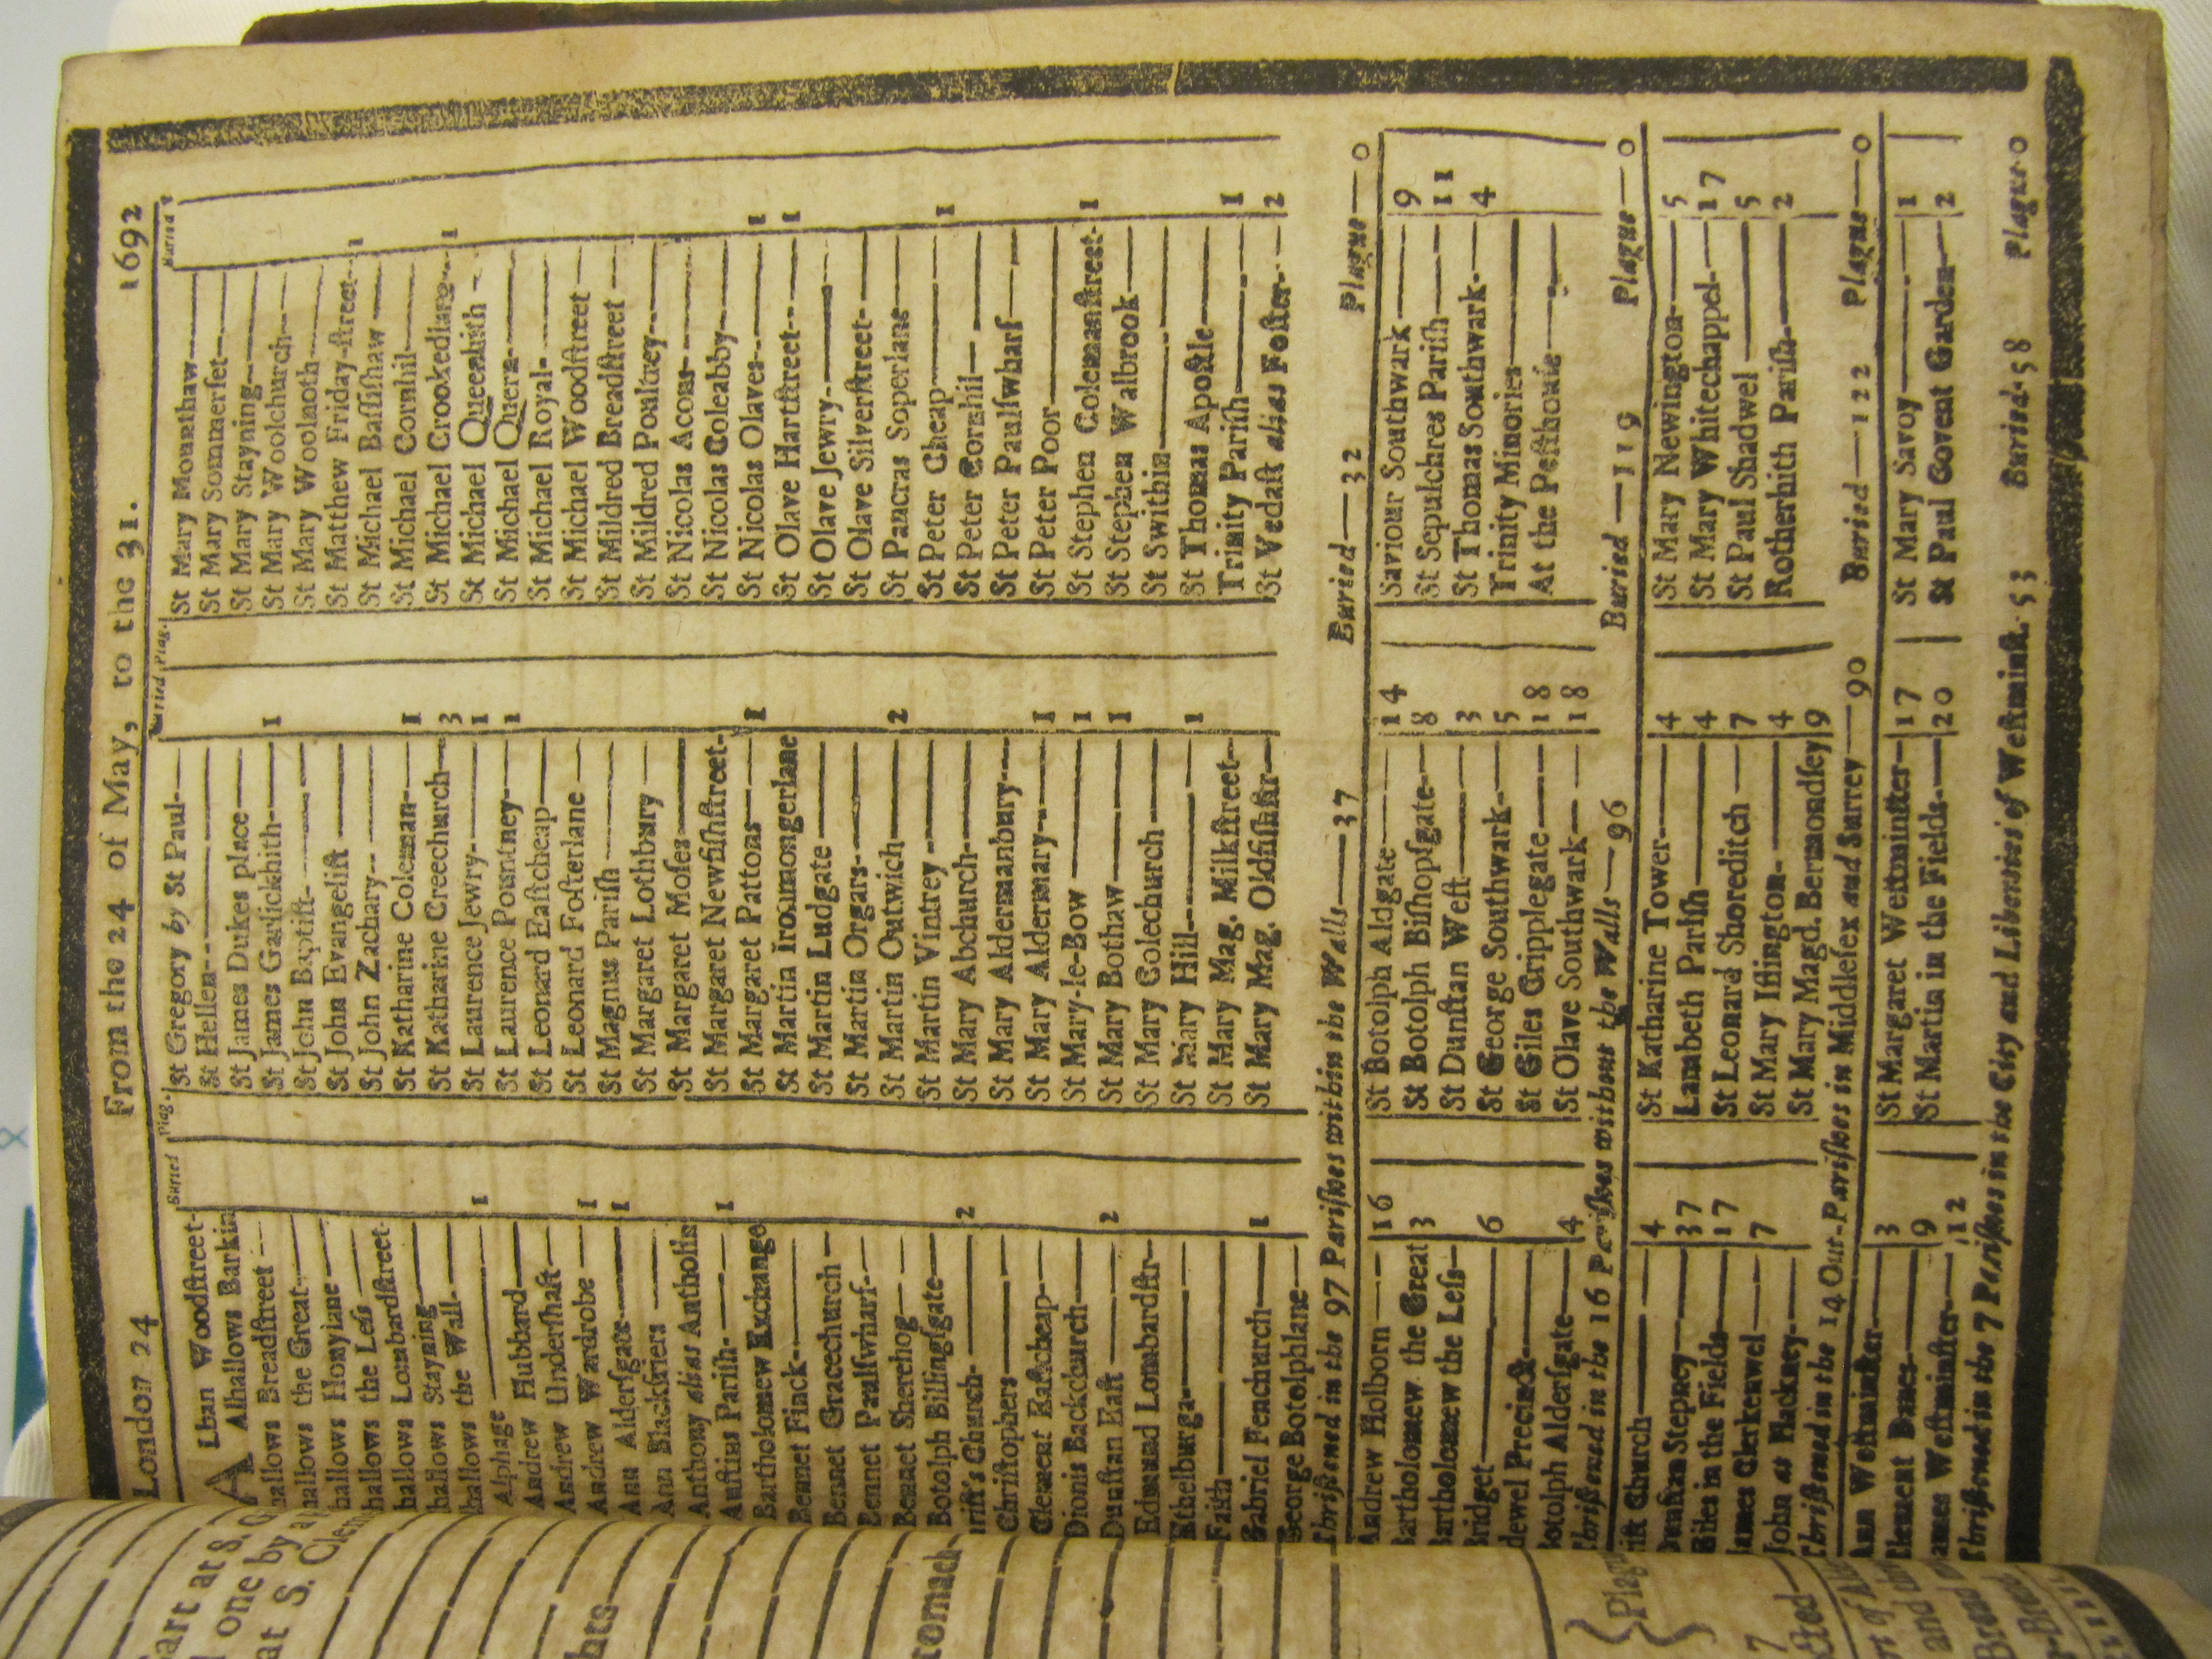 London 24 From the 24 of May, to the 31. 1692
Buried Plag.
Buried Plag.
Buried
ALban Woodſtreet-
Alhallows Barkin
hallows Breadſtreet
hallows the Great
hallows Honylane
hallows the Leſs
hallows Lombardſtreet
hallows Stayning
hallows the Wall
Alphage 1
Andrew Hubbard
Andrew Underſhaft
Andrew Wardrobe 1
Ann Alderſgate 1
Ann Blackfriers
Anthony alias Antholin
Auſtins Pariſh 1
Bartholomew Exchange
Bennet Finck
Bennet Gracechurch
Bennet Paulſwharf
Bennet Sherehog
Botolph Billingſgate
Chriſt's Church 2
Chriſtophers
Clement Eaſtcheap
Dionis Backchurch
Dunſtan Eaſt 2
Edmund Lombardſtr
Ethelburga
Faith
Gabriel Fenchurch 1
George Botolphlane
St Gregory by St Paul
St Hellen
St James Dukes place
St James Garlickhith 1
St John Baptiſt
St John Evangeliſt
St John Zachary
St Katharine Coleman 1
St Katharine Creechurch 3
St Laurence Jewry 1
St Laurence Pountney 1
St Leonard Eaſtcheap
St Leonard Foſterlane
St Magnus Pariſh
St Margaret Lothbury
St Margaret Moſes
St Margaret Newfiſhſtreet
St Margaret Pattons 1
St Martin Ironmongerlane
St Martin Ludgate
St Martin Orgars
St Martin Outwich 2
St Martin Vintrey
St Mary Abchurch
St Mary Aldermanbury
St Mary Aldermary 1
St Mary-le-Bow 1
St Mary Bothaw 1
St Mary Colechurch
St Mary Hill 1
St Mary Mag. Milkſtreet
St Mary Mag. Oldfiſhſtr
St Mary Mounthaw
St Mary Sommerſet
St Mary Stayning
St Mary Woolchurch
St Mary Woolnoth
St Matthew Friday-ſtreet 1
St Michael Baſſiſhaw
St Michael Cornhil
St Michael Crookedlane 1
St Michael Queenhith
St Michael Quern
St Michael Royal
St Michael Woodſtreet
St Mildred Breadſtreet
St Mildred Poultrey
St Nicolas Acons
St Nicolas Coleabby
St Nicolas Olaves 1
St Olave Hartſtreet 1
St Olave Jewry
St Olave Silverſtreet
St Pancras Soperlane
St Peter Cheap 1
St Peter Cornhil
St Peter Paulſwharf
St Peter Poor
St Stephen Colemanſtreet 1
St Stephen Walbrook
St Swithin
St Thomas Apoſtle
Trinity Pariſh 1
St Vedaſt alias Foſter 2
Chriſtened in the 97 Pariſhes within the Walls—37 Buried—32 Plague—0
Andrew Holborn 16
Bartholomew the Great 3
Bartholomew the Leſs
Bridget 6
dewel Precinct
Botolph Alderſgate 4
St Botolph Aldgate 14
St Botolph Biſhopſgate 8
St Dunſtan Weſt 3
St George Southwark 5
St Giles Cripplegate 18
St Olave Southwark 18
Saviour Southwark 9
St Sepulchres Pariſh 11
St Thomas Southwark 4
Trinity Minories
At the Peſthouſe
Chriſtened in the 16 Pariſhes without the Walls—96 Buried—119 Plague—0
iſt Church 4
Dunſtan Stepney 37
Giles in the Fields 17
James Clerkenwel 7
John at Hackney
St Katharine Tower 4
Lambeth Pariſh 4
St Leonard Shoreditch 7
St Mary Iſlington 4
St Mary Magd. Bermondſey 9
St Mary Newington 5
St Mary Whitechappel 17
St Paul Shadwel 5
Rotherhith Pariſh 2
Chriſtened in the 14 Out-Pariſhes in Middleſex and Surrey—90 Buried—122 Plague—0
Ann Weſtminſter 3
Clement Danes 9
James Weſtminſter 12
St Margaret Weſtminſter 17
St Martin in the Fields 20
St Mary Savoy 1
St Paul Covent Garden 2
Chriſtened in the 7 Pariſhes in the City and Liberties of Weſtminſt. 53 Buried 58 Plague 0
art at S. G
one by a
at S. Clem
tomach
Plagu
7
and
Bread